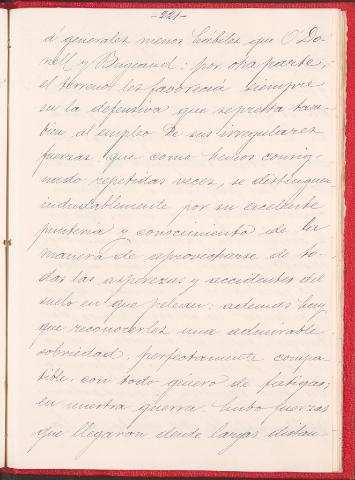 -221-
á generales menos hábiles que O'Do-
nell y Bugeaud: por otra parte,
el terreno les favorecia siempre
en la defensiva que se presta tam-
bien al empleo de sus irregulares
fuerzas que como hemos consig-
nado repetidas veces, se distinguen
indudablemente por su excelente
punteria y conocimiento de la
manera de aprovecharse de to-
das las asperezas y accidentes del
suelo en que pelean: además hay
que reconocerles una admirable
sobriedad, perfectamente compa-
tible con todo género de fatigas;
en nuestra guerra hubo fuerzas
que llegaron desde largas distan-